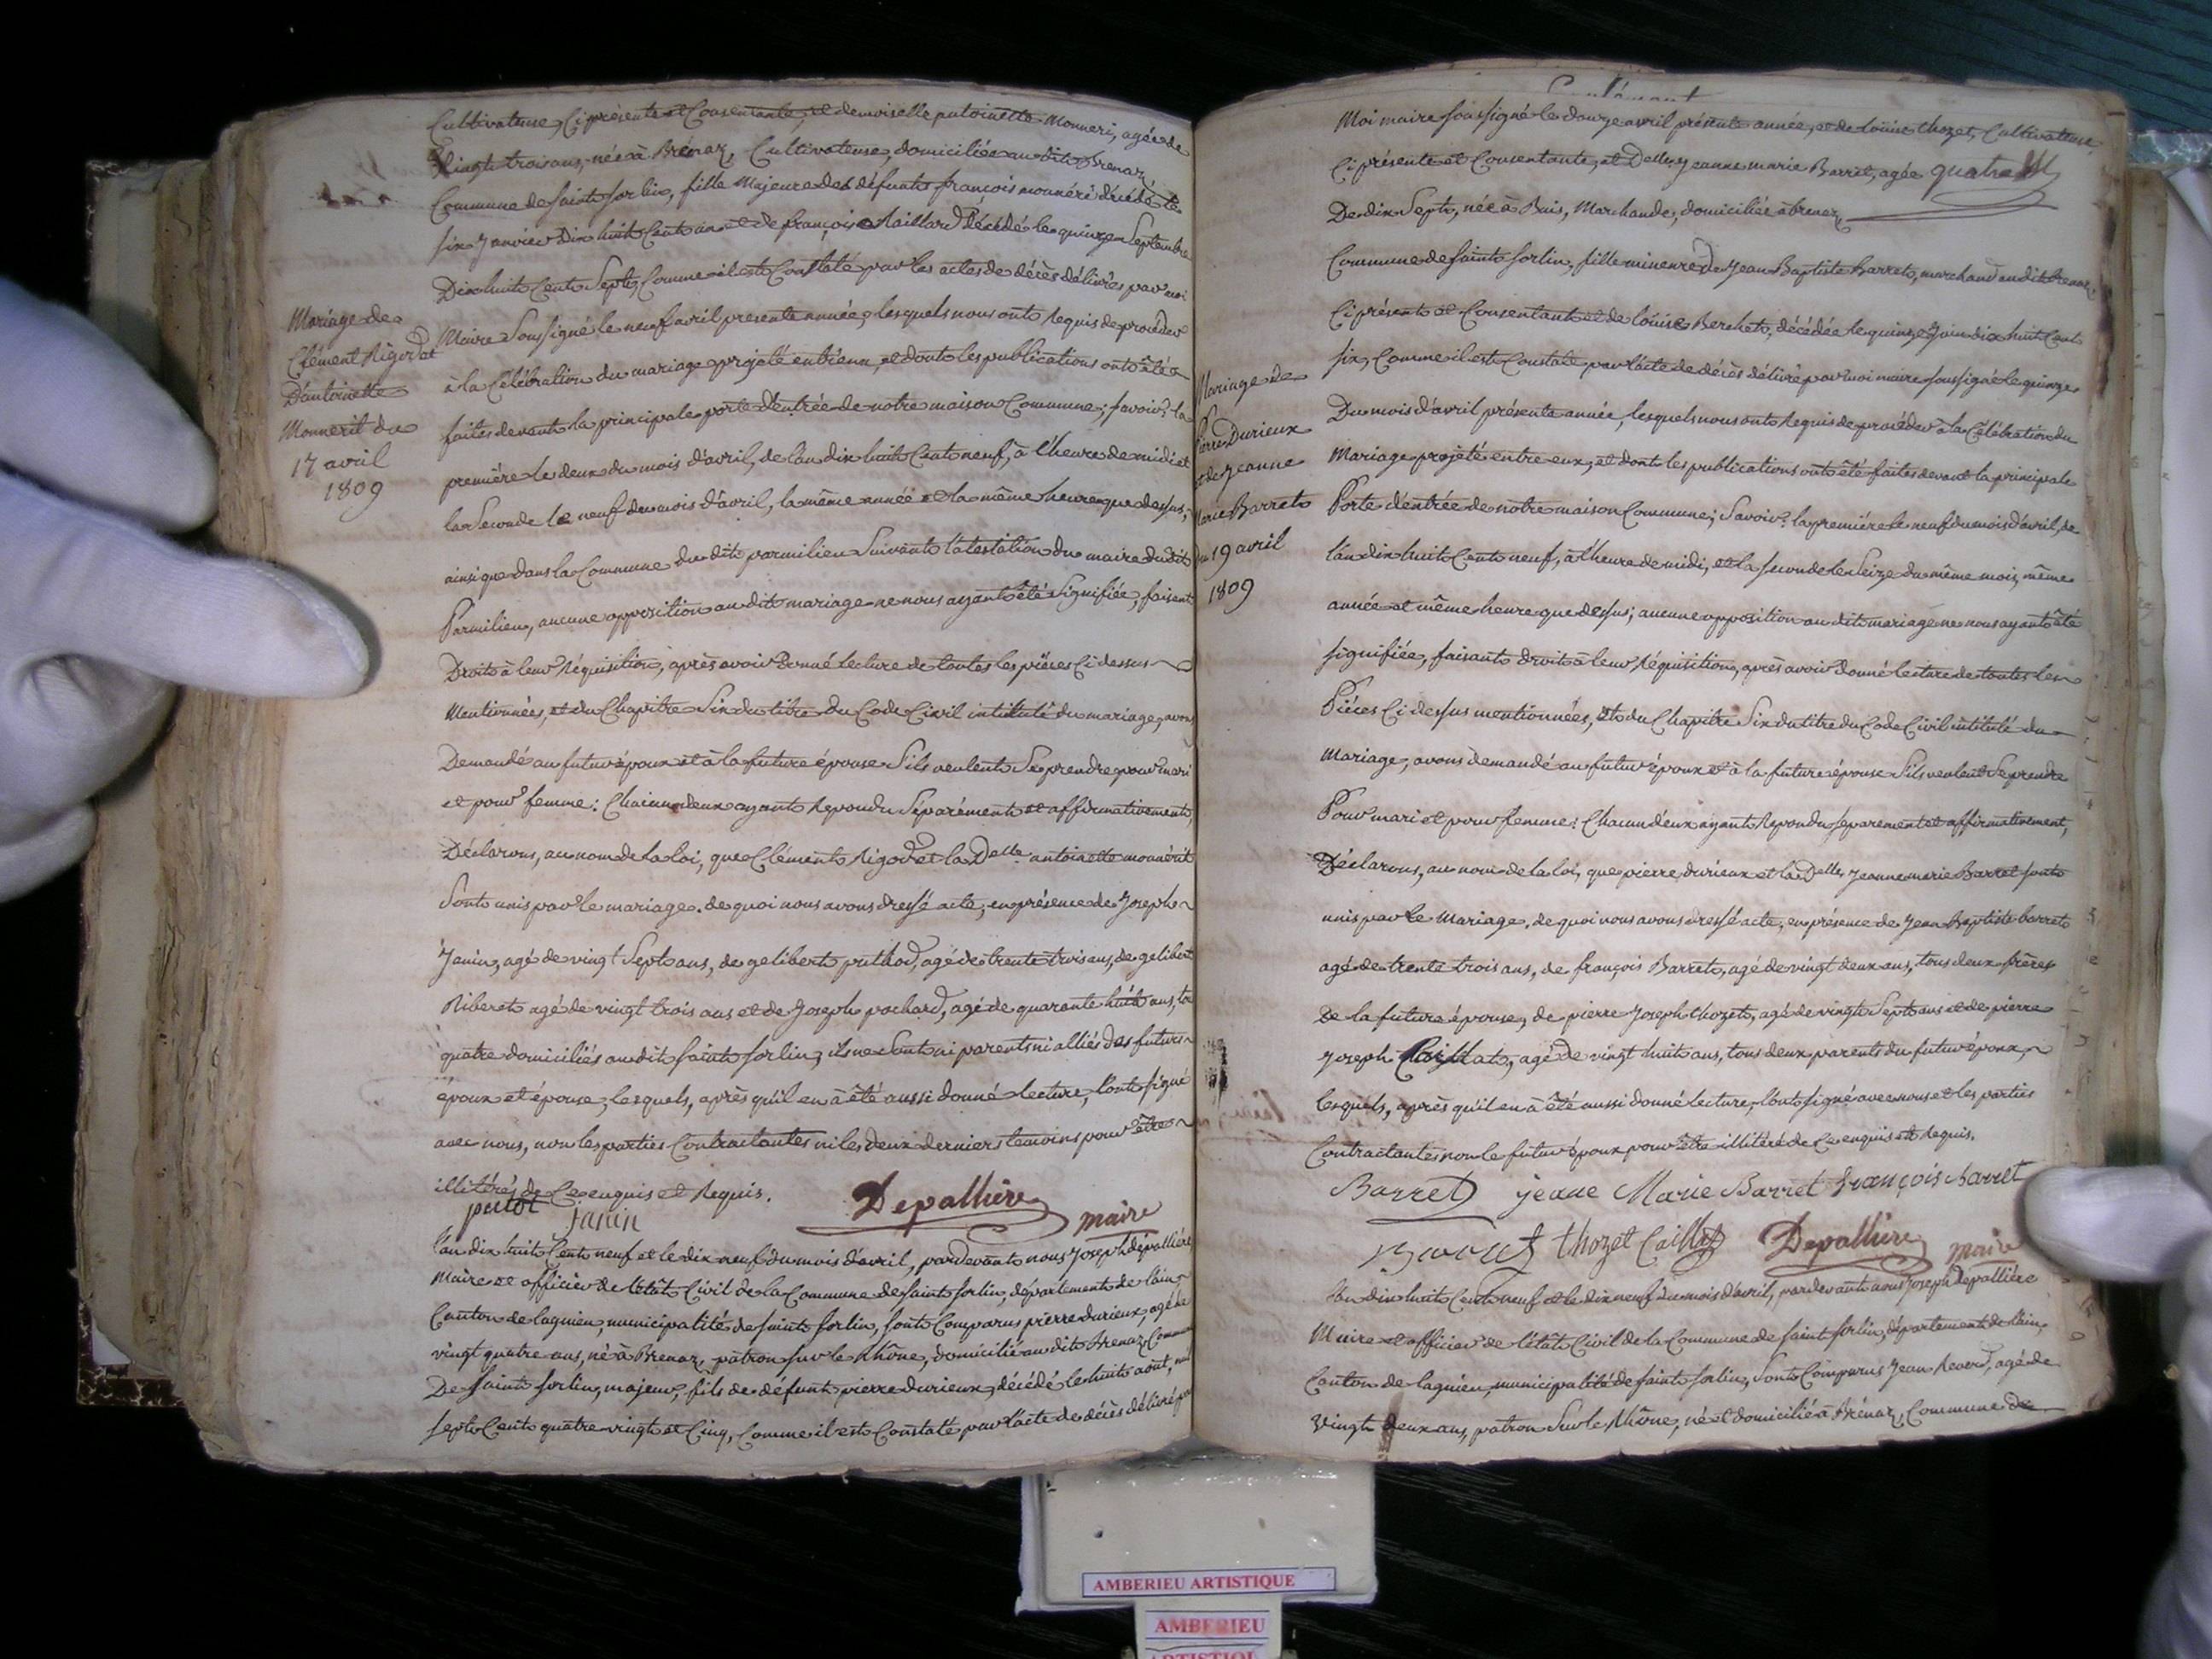 Cultivateuse, Ci présente et Consentante, et demoiselle antoinette Monneri, agée de
Vingt trois ans, née à Brenaz, Cultivateuse, domiciliée au dit Brenaz,
Commune de saint sorlin, fille Majeure des défunts françois monnéri décédé le
six Janvier Dix huit Cent un et de françoise Maillard Décédé le quinze Septembre
Dix huit Cent Sept, Comme il est Constaté par les actes de décès délivrés par moi
Maire Soussigné le neuf avril presente année, lesquels nous ont Requis de proceder
à la Célébration du mariage projeté entr'eux, et dont les publications ont été
faites devant la principale porte d'entrée de notre maison Commune; savoir: la
première le deux du mois d'avril, de l'an dix huit Cent neuf, à l'heure de midi et
la Seconde le neuf du mois d'avril, la même année et la même heure que dessus,
ainsi que dans la Commune du dit parmilieu Suivant l'atestation du maire du dit
Parmilieu, aucune opposition au dit mariage ne nous ayant été Signifiée, faisant
Droit à leur Réquisition, après avoir Donné lecture de toutes les pièces Ci dessus
Mentionnées, et du Chapitre Six du titre du Code Civil intitulé du mariage, avons
Demandé au futur époux et à la future épouse S'ils veulent Se prendre pour mari
et pour femme: Chacun d'eux ayant Repondu Séparément et affirmativement,
Déclarons, au nom de la loi, que Clément Rigod et la Delle antoinette monnérit
Sont unis par le mariage. de quoi nous avons dressé acte, en présence de Joseph
Janin, agé de vingt Sept ans, de gelibert puthod, agé de trente trois ans, de gelibert
Riberet agé de vingt trois ans et de Joseph pochard, agé de quarante huit ans, tou
quatre domiciliés au dit saint sorlin, ils ne Sont ni parents ni alliés des futurs
époux et épouse, lesquels, après qu'il en à été aussi donné lecture, l'ont signé
avec nous, non les parties Contractantes ni les deux derniers temoins pour être
illitérés de Ce enquis et Requis.
Janin Depallière maire
Mariage de
Clément Rigod et
D'antoinette
Monnerit du
17 avril
1809
l'an dix huit Cent neuf et le dix neuf du mois d'avril, pardevant nous Joseph depallière
Maire et officier de l'état Civil de la Commune de saint sorlin, département de l'ain,
Canton de lagnieu, municipalité de saint sorlin, sont Comparus pierre durieux, agé de
vingt quatre ans, né à Brenaz, patron sur le Rhône, domicilié au dit Brenaz, Commune
De saint sorlin, majeur, fils de défunt pierre durieux, décédé le huit aout, mil
sept Cent quatre vingt et Cinq, Comme il est Constaté par l'acte de décès délivré par
Moi maire soussigné le douze avril présente année, et de louise thozet, Cultivateuse,
Ci présente et Consentante, et Delle Jeanne marie Barret, agée quatre
De dix Sept, née à Buis, Marchande, domiciliée à brenaz
Commune de saint sorlin, fille mineure de Jean Baptiste Barret, marchand au dit Brenaz,
Ci présent et Consentant et de loüise Berchet, décédée le quinze Juin dix huit Cent
six, Comme il est Constaté par l'acte de décès délivré par moi maire soussigné le quinze
Du mois d'avril présente année, lesquels nous ont Requis de procéder à la Célébration du
Mariage projeté entre eux, et dont les publications ont été faites devant la principale
Porte d'entrée de notre maison Commune; Savoir: la première le neuf du mois d'avril, de
l'an dix huit Cent neuf, à l'heure de midi, et la seconde le Seize du même mois, même
année et même heure que dessus; aucune opposition au dit mariage ne nous ayant été
signifiée, faisant droit à leur Réquisition, après avoir donné lecture de toutes les
Pièces Ci dessus mentionnées, et du Chapitre Six du titre du Code Civil intitulé du
Mariage, avons demandé au futur époux et à la future épouse S'ils veulent Se prendre
Pour mari et pour femme: Chacun d'eux ayant Repondu séparement et affirmativement,
Déclarons, au nom de la loi, que pierre durieux et la Delle Jeanne marie Barret sont
unis par le Mariage. de quoi nous avons dressé acte, en présence de Jean Baptiste barret
agé de trente trois ans, de françois Barret, agé de vingt deux ans, tous deux frères
De la future épouse, de pierre Joseph thozet, agé de vingt Sept ans et de pierre
Joseph Caillat, agé de vingt huit ans, tous deux parents du futur époux,
lesquels, après qu'il en à été aussi donné lecture, l'ont signé avec nous et les parties
Contractantes non le futur époux pour être illitéré de Ce enquis et Requis.
Barret jeane Marie Barret François Barret
Barret thozet Caillat Depallière maire
Mariage de
Pierre Durieux
et de Jeanne
Marie Barret
du 19 avril
1809
l'an dix huit Cent neuf et le dix neuf du mois d'avril, pardevant nous Joseph Depallière
Maire et officier de l'état Civil de la Commune de saint sorlin, département de l'ain,
Canton de lagnieu, municipalité de saint sorlin, Sont Comparus Jean Reverd, agé de
Vingt deux ans, patron Sur le Rhône, né et domicilié à Brénaz, Commune de
AMBERIEU ARTISTIQUE
AMBERIEU
ARTISTIQUE